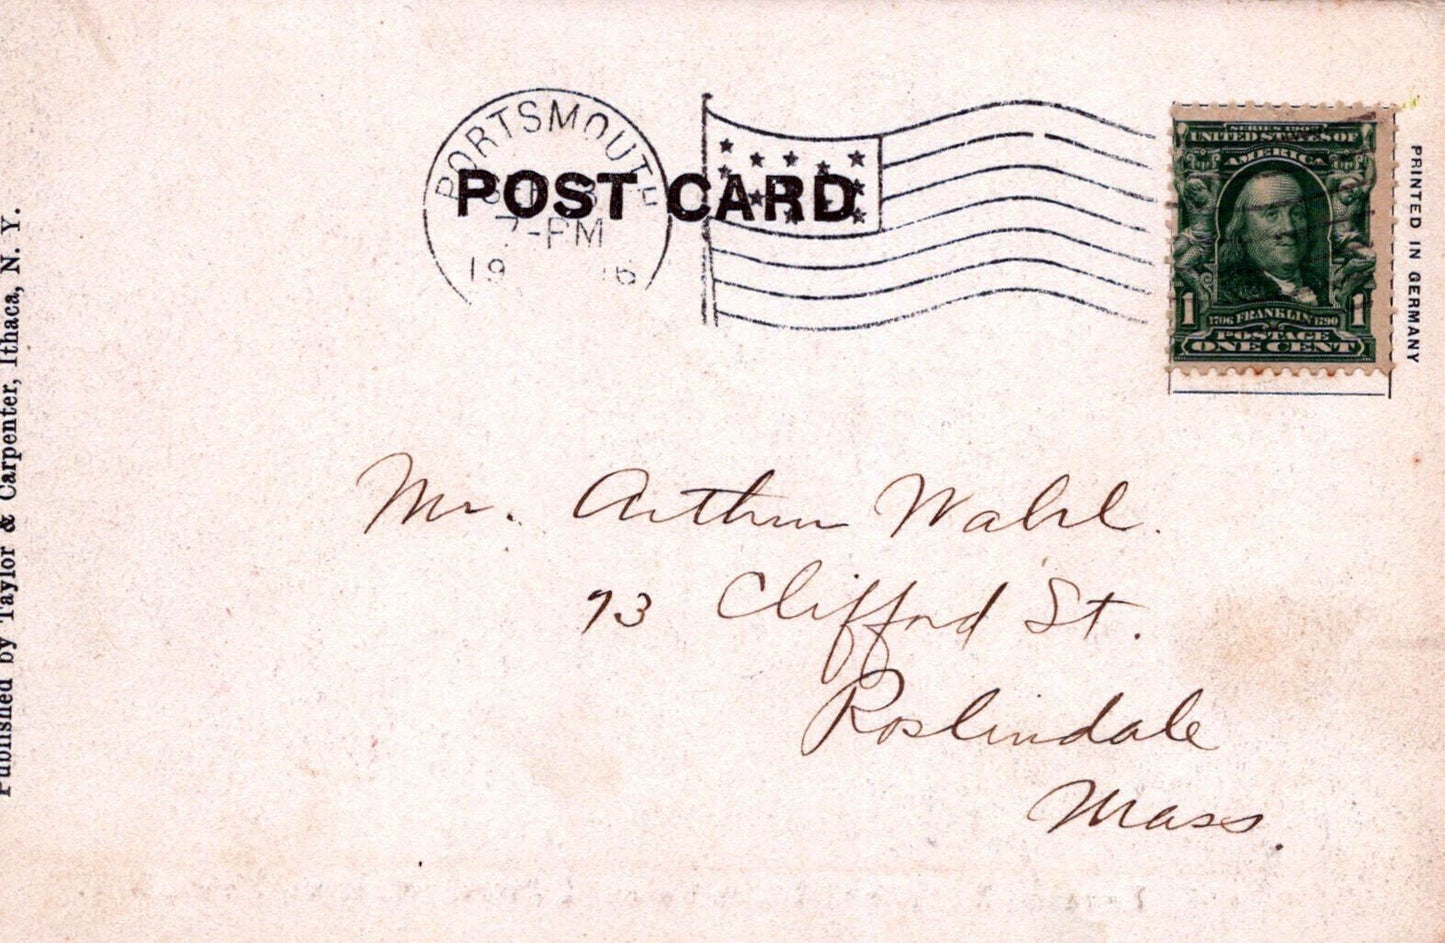 PORTSMOUTH
POST CARD
7-PM
19 06
SERIES 1902
UNITED STATES OF
AMERICA
1 1
1706 FRANKLIN 1790
POSTAGE
ONE CENT
PRINTED IN GERMANY
Published by Taylor & Carpenter, Ithaca, N. Y.
Mr. Arthur Wahl.
73 Clifford St.
Roslindale
Mass.